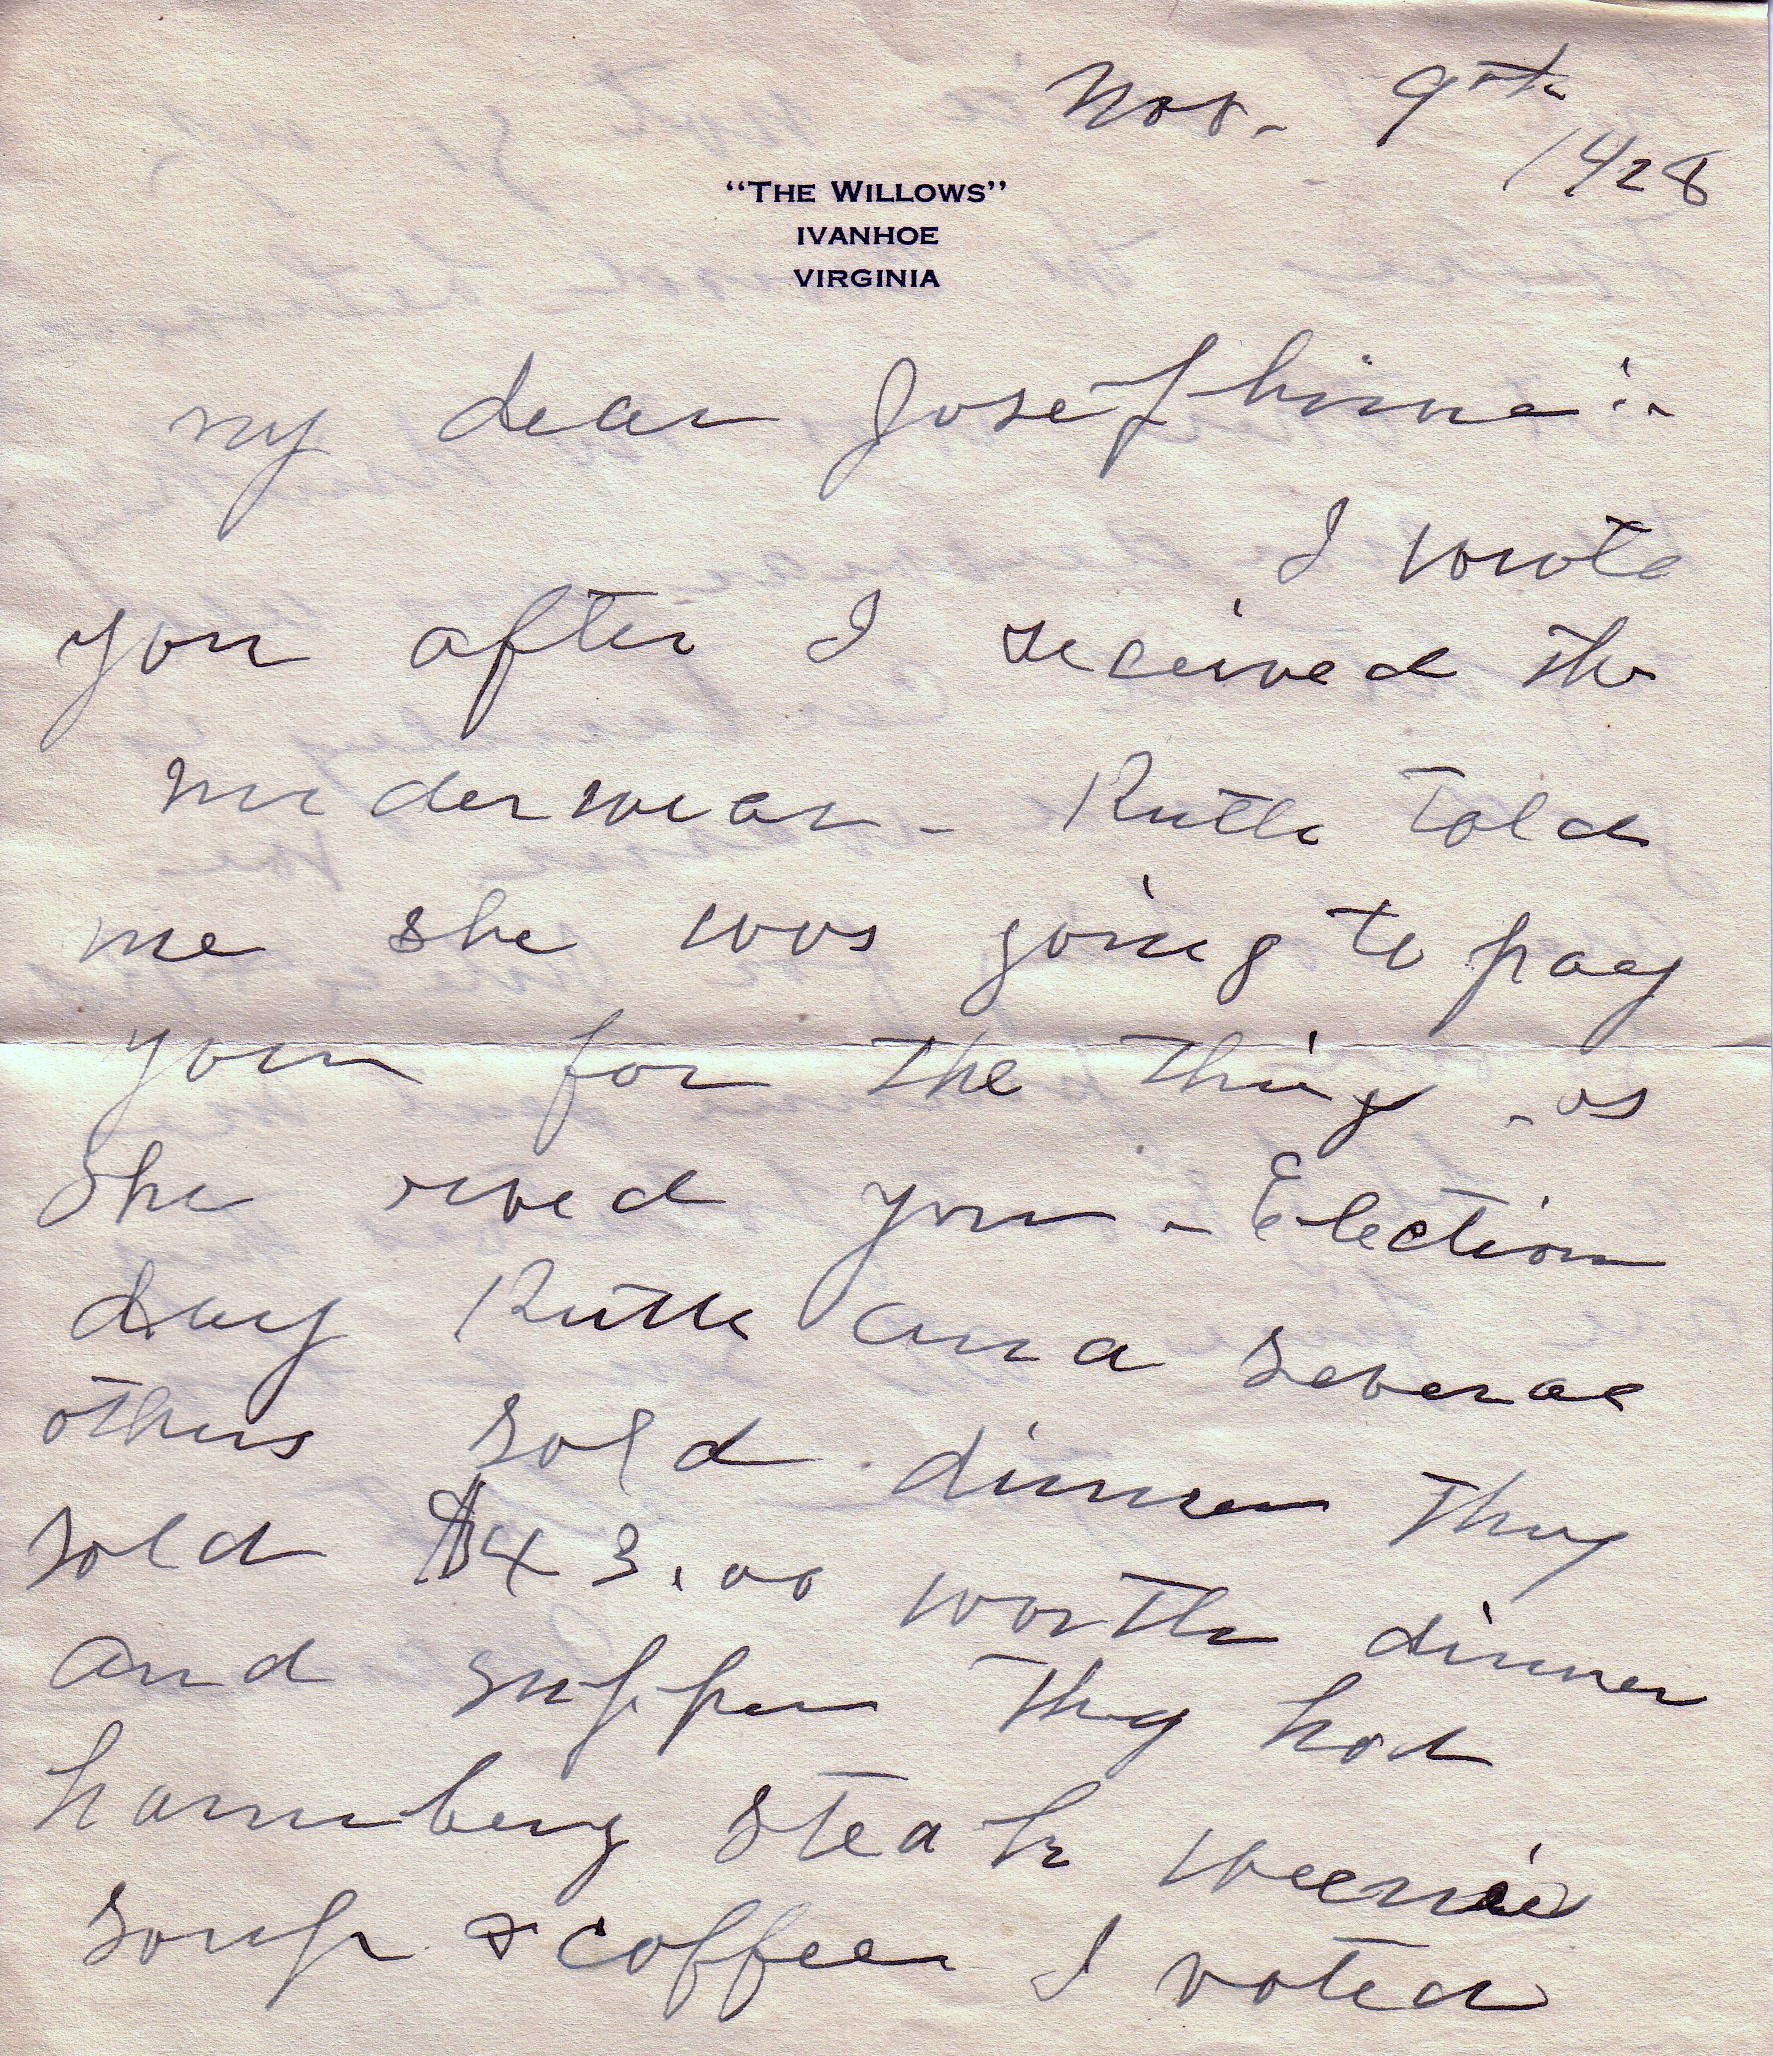 Nov. 9th
1928
"THE WILLOWS"
IVANHOE
VIRGINIA
My dear Josephine :-
I wrote
you after I received the
underwear - Ruth told
me she was going to pay
you for the things - as
she owed you - Election
day Ruth and several
others sold dinner they
sold $43.00 worth dinner
and supper they had
hamberg steak weenies
soup & coffee I voted